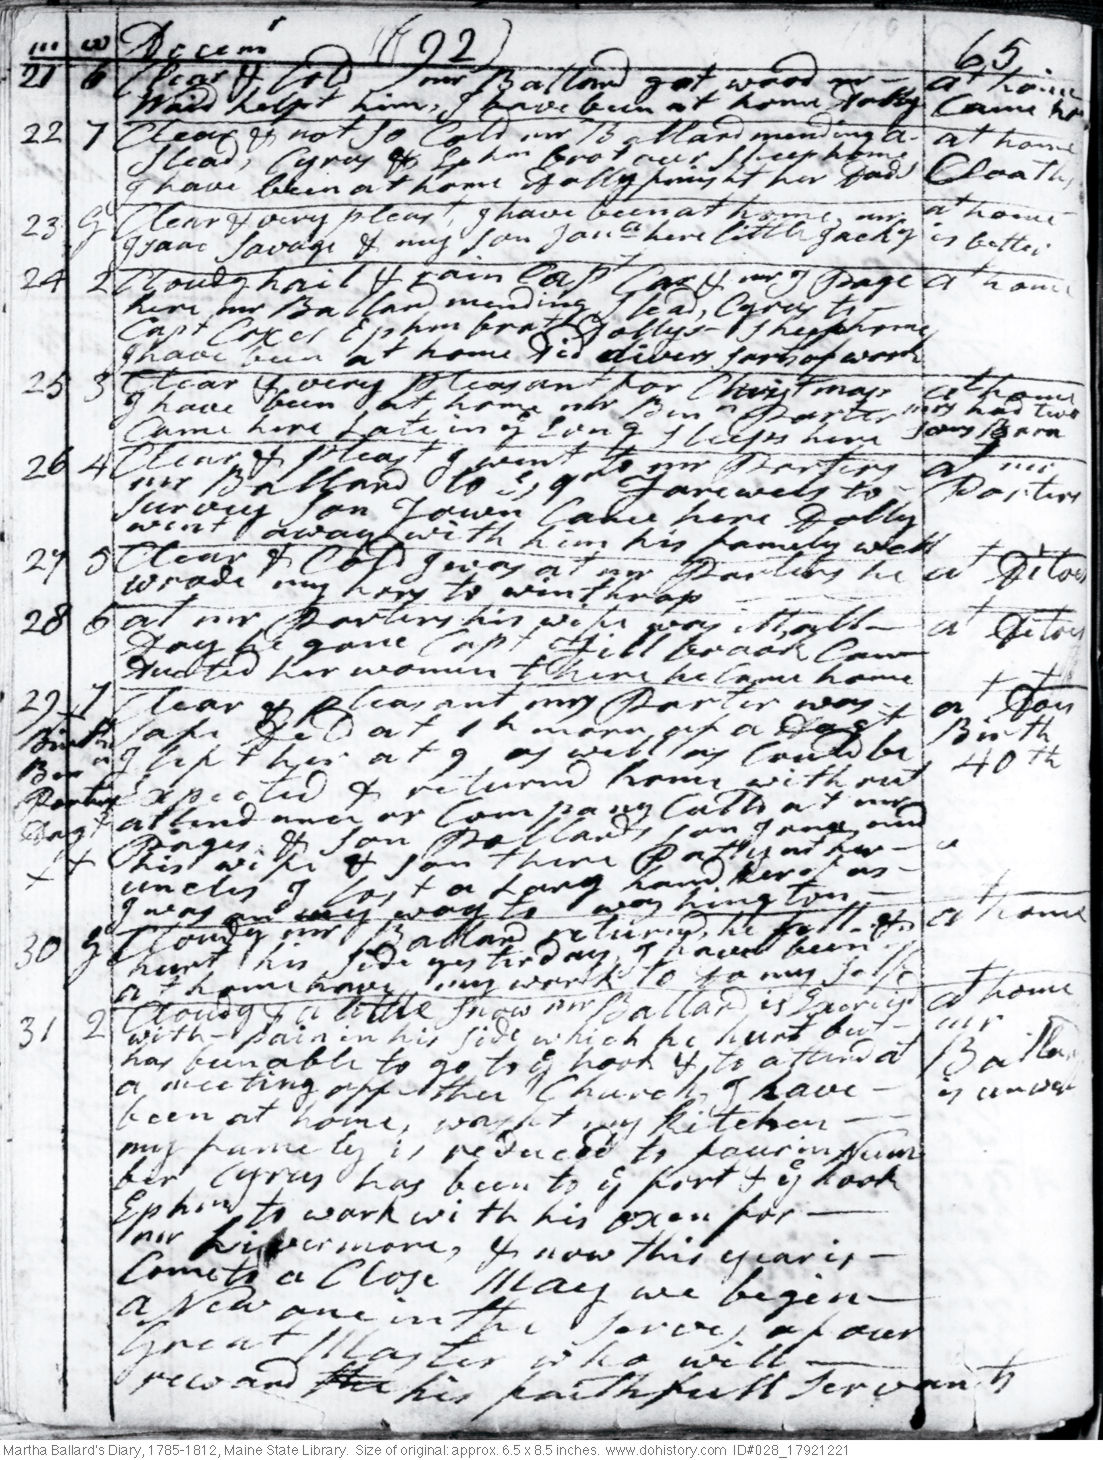 m w Decem r (92) 65
21 6 Clear & Cold mr Ballard got wood mr at home
Waid helpt him, I have been at home Dolly Came
22 7 Clear & not So Cold mr Ballard mending a at home
Slead, Cyrus & Ephm brot our Sheep home
I have been at home Dolly finisht her Cloaths
23 G Clear & very pleast, I have been at home, mr at home
Isaac Savage & my Son Jona here little Jacky is better
24 2 Cloudy hail & rain Capt Cox & mr Page at home
here mr Ballard mending Slead, Cyrus to
Capt Coxes Ephm brot Dollys Sheep home
I have been at home Did divers sorts of work
25 3 Clear & very pleasant for Christmas at home
I have been at home mr Ben n Porter mrs had two
Came here Late in ye Evng Sleeps here Born
26 4 Clear & pleast I went to mr Porters at mr
mr Ballard to Farewels to Porters
Survey Son Town Came here Dolly
went away with him his famely well
27 5 Clear & Cold I was at mr Porters he at Ditoes
wrode my hors to winthrop
28 6 at mr Porters his wife was ill all at Ditoes
Day he gone Capt Fillbrook Con
ducted her women there he Came home
29 7 Clear & pleasant mrs Porter was at Dou
Birth safe Deld at 1 h morn of a Dagt Birth
Ben n I left her at 9 as well as Could be 40th
Porters Expected & returnd home with out
Dagt attendance or Company Calld at mr
x x Pages & Son Pollards Son Jona and
his wife & Son there Patty at her
uncles I Lost a Larg hand kerchf as
I was on my way to washington
30 G Cloudy mr Ballard returnd, he fell & at home
hurt his Side yesterday, I have been
at home have my work to Do my Self
31 2 Cloudy & a little Snow mr Ballard is Exercisd at home
with pain in his Side which he hurt but mr
has been able to go to ye hook & to attend at Ballard
a meeting off ther Church, I have is unwel
been at home, washt my kitchen
my famely is reduced to four in Num
ber Cyrus has been to ye fort & ye hook
Ephm to work with his oxen for
mr Livermore, & now this year is
Come to a Close May we begin
a New one in the Servis of our
Great Master who will
reward the his faithfull Servants
Martha Ballard's Diary, 1785-1812, Maine State Library. Size of original: approx. 6.5 x 8.5 inches. www.dohistory.com ID#028_17921221